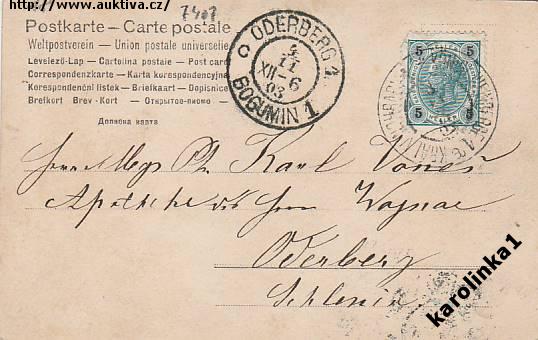 http://www.auktiva.cz/
7407
Postkarte - Carte postale
Weltpostverein - Union postale universelle
Levelező-Lap - Cartolina postale - Post card
Correspondenzkarte - Karta korespondencyjna
Korespondenční listek - Briefkaart - Dopisnice
Brefkort Brev-Kort - Открытое письмо
Дописна карта
ODERBERG 1.
XII 6
03
BOGUMIN 1
5 5
5 5
Karl
Apotheke des Herrn Wagnar
Oderberg
Schlesien
karolinka1